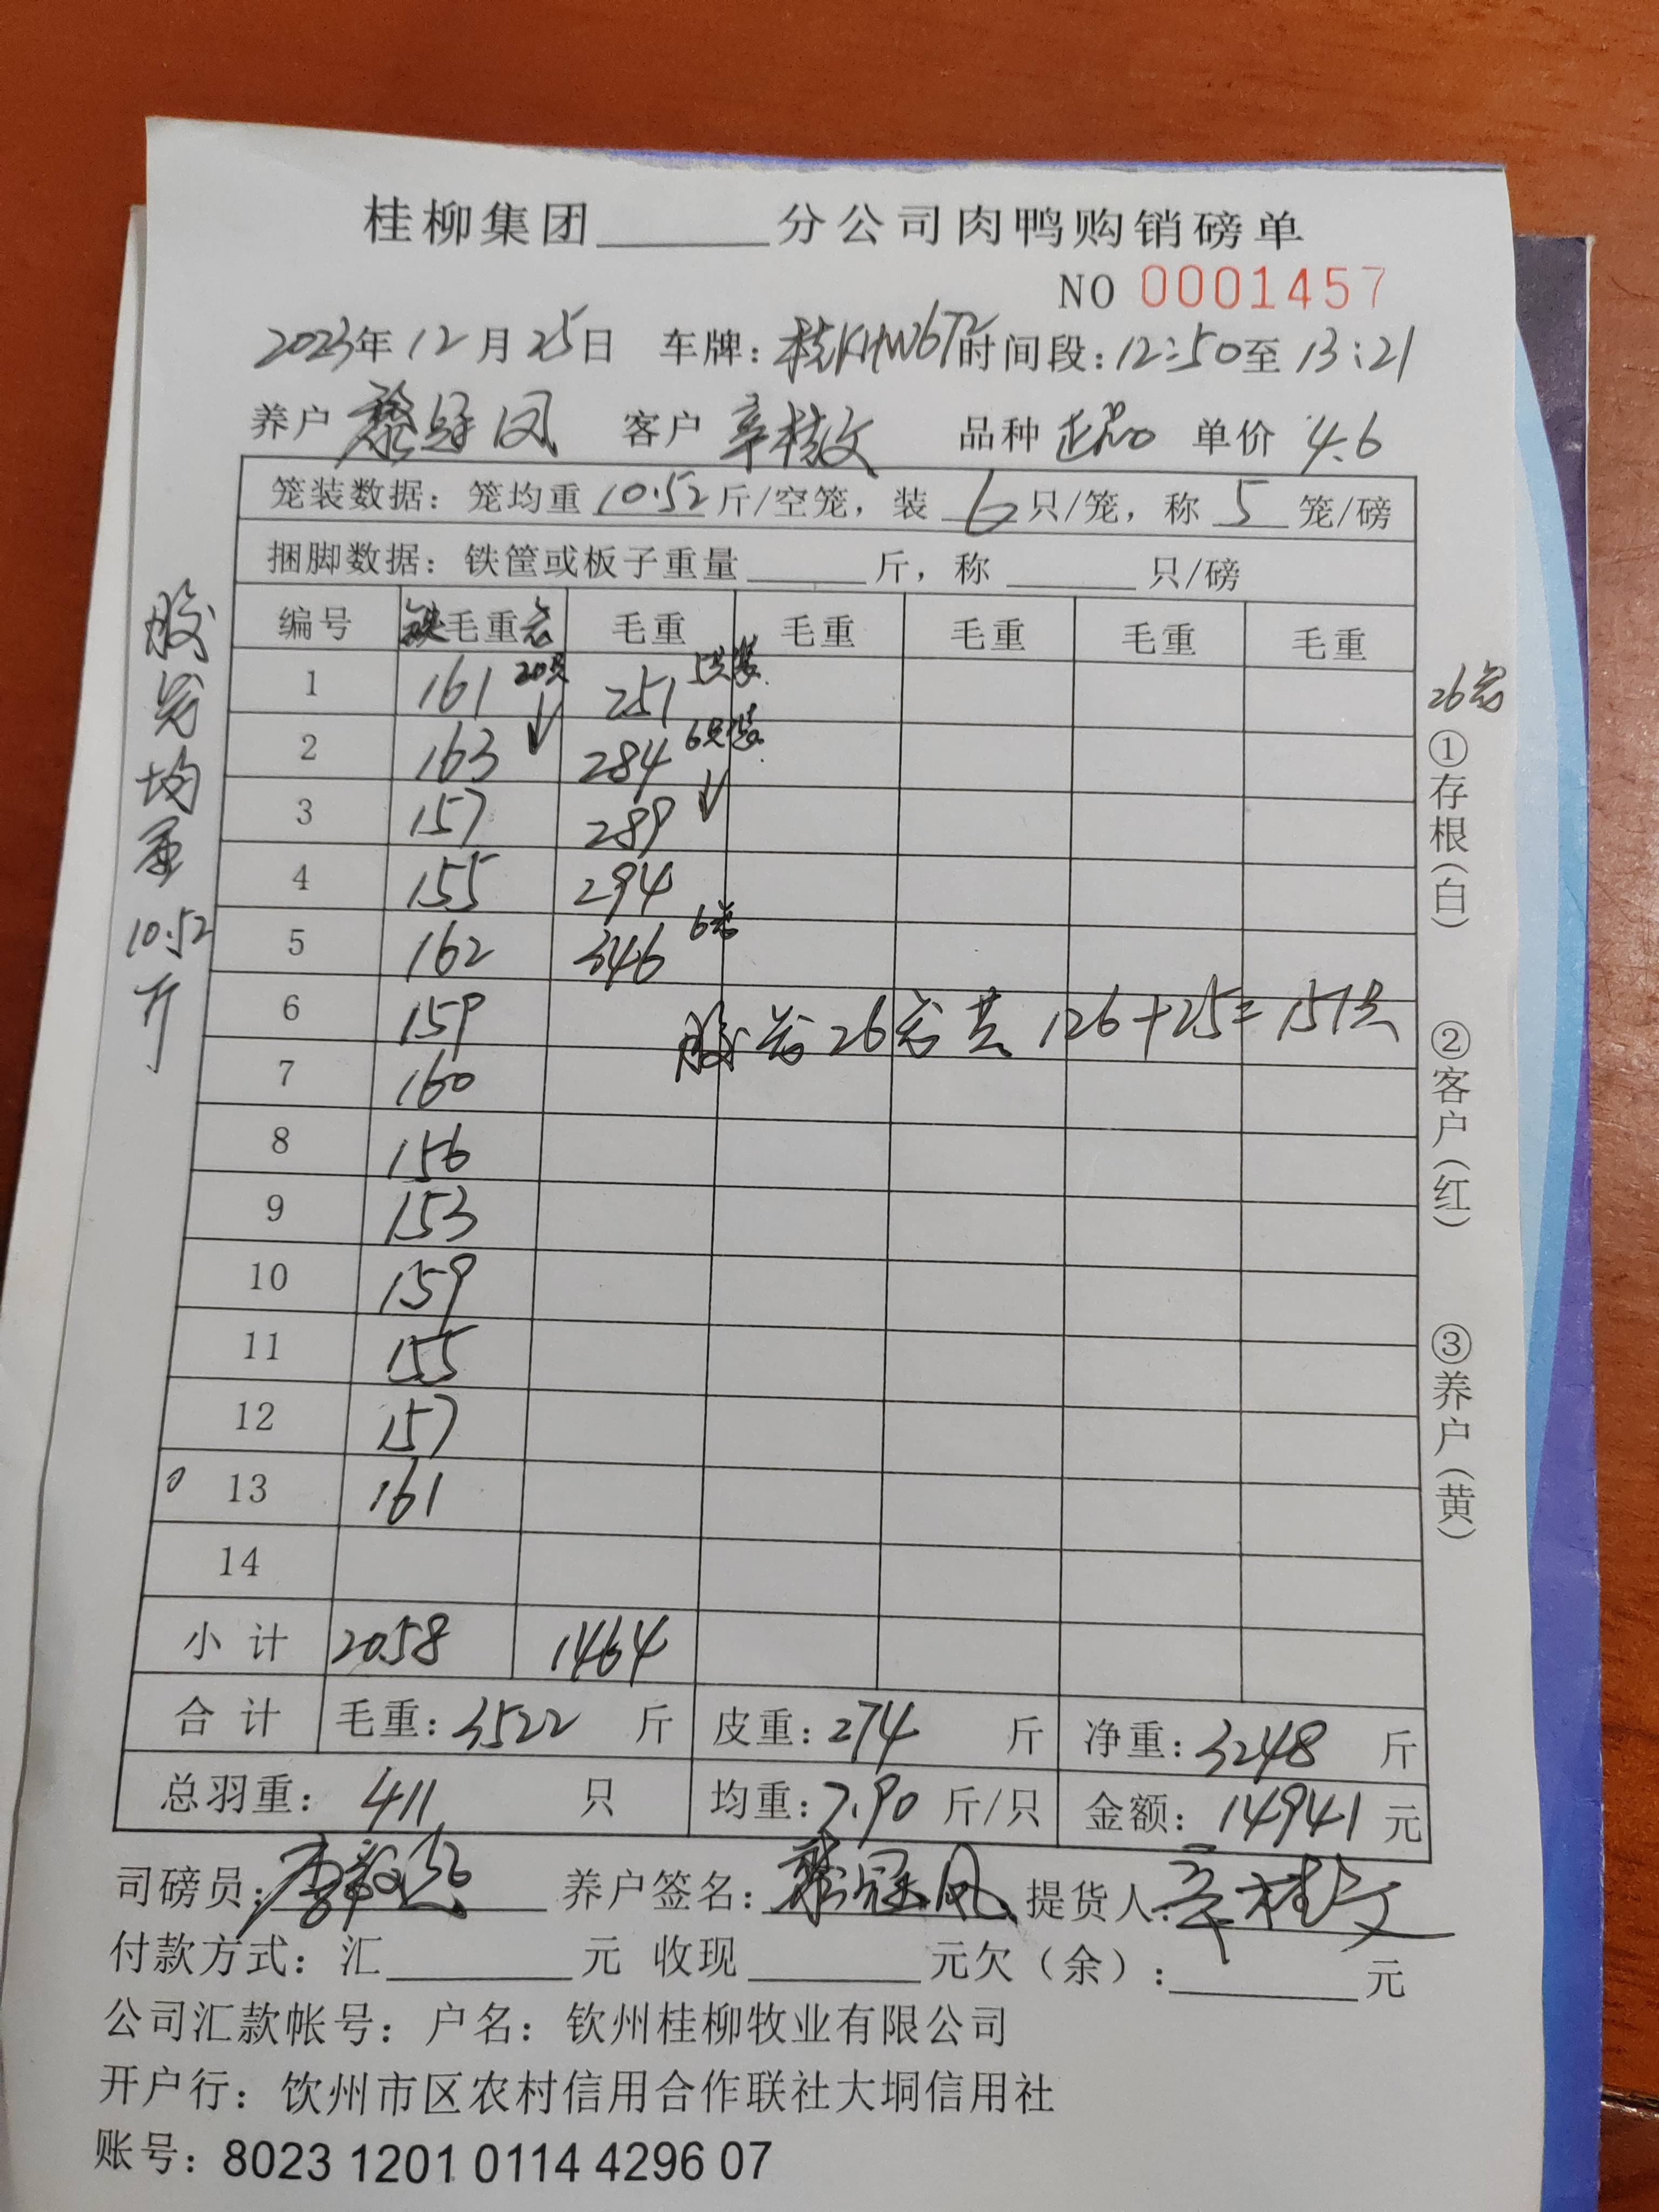 桂柳集团______分公司肉鸭购销磅单
NO 0001457
2023年12月25日 车牌：桂KHW672 时间段：12:50至13:21
养户 黎冠凤 客户 辛桂文 品种 正品 单价 4.6
笼装数据：笼均重10.52斤/空笼，装6只/笼，称5笼/磅
捆脚数据：铁筐或板子重量____斤，称____只/磅
编号 铁毛重笼 毛重 毛重 毛重 毛重 毛重
1 161 20只 251 5只装
2 163 284 6只装
3 157 289
4 155 294
5 162 346 6笼
6 159 胶笼26笼共126+25=151只
7 160
8 156
9 153
10 159
11 155
12 157
13 161
14
小计 2058 1464
合计 毛重：3522 斤 皮重：274 斤 净重：3248 斤
总羽重：411 只 均重：7.90 斤/只 金额：14941 元
司磅员： 养户签名：黎冠凤 提货人：辛桂文
付款方式：汇______元 收现______元欠（余）：______元
公司汇款帐号：户名：钦州桂柳牧业有限公司
开户行：饮州市区农村信用合作联社大垌信用社
账号：8023 1201 0114 4296 07
胶笼均重10.52斤
26笼
①存根（白）
②客户（红）
③养户（黄）